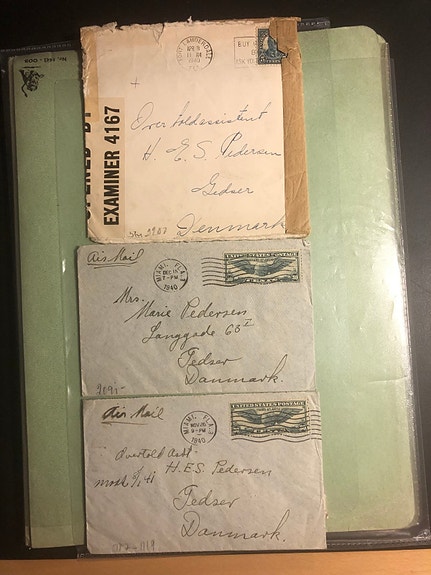 FORT LAUDERDALE
APR 9
1940
BUY
OPENED BY
EXAMINER 4167
Overtoldassistent
H. E. S. Pedersen
Gedser
Denmark
Air Mail
MIAMI, FLA.
DEC 18
7-PM
1940
UNITED STATES POSTAGE
Mrs.
Marie Pedersen
Langgade 65 I
Gedser
Danmark.
Air Mail
MIAMI, FLA.
NOV 20
9-PM
1940
UNITED STATES POSTAGE
Overtold Asst
H.E.S. Pedersen
Gedser
Danmark.